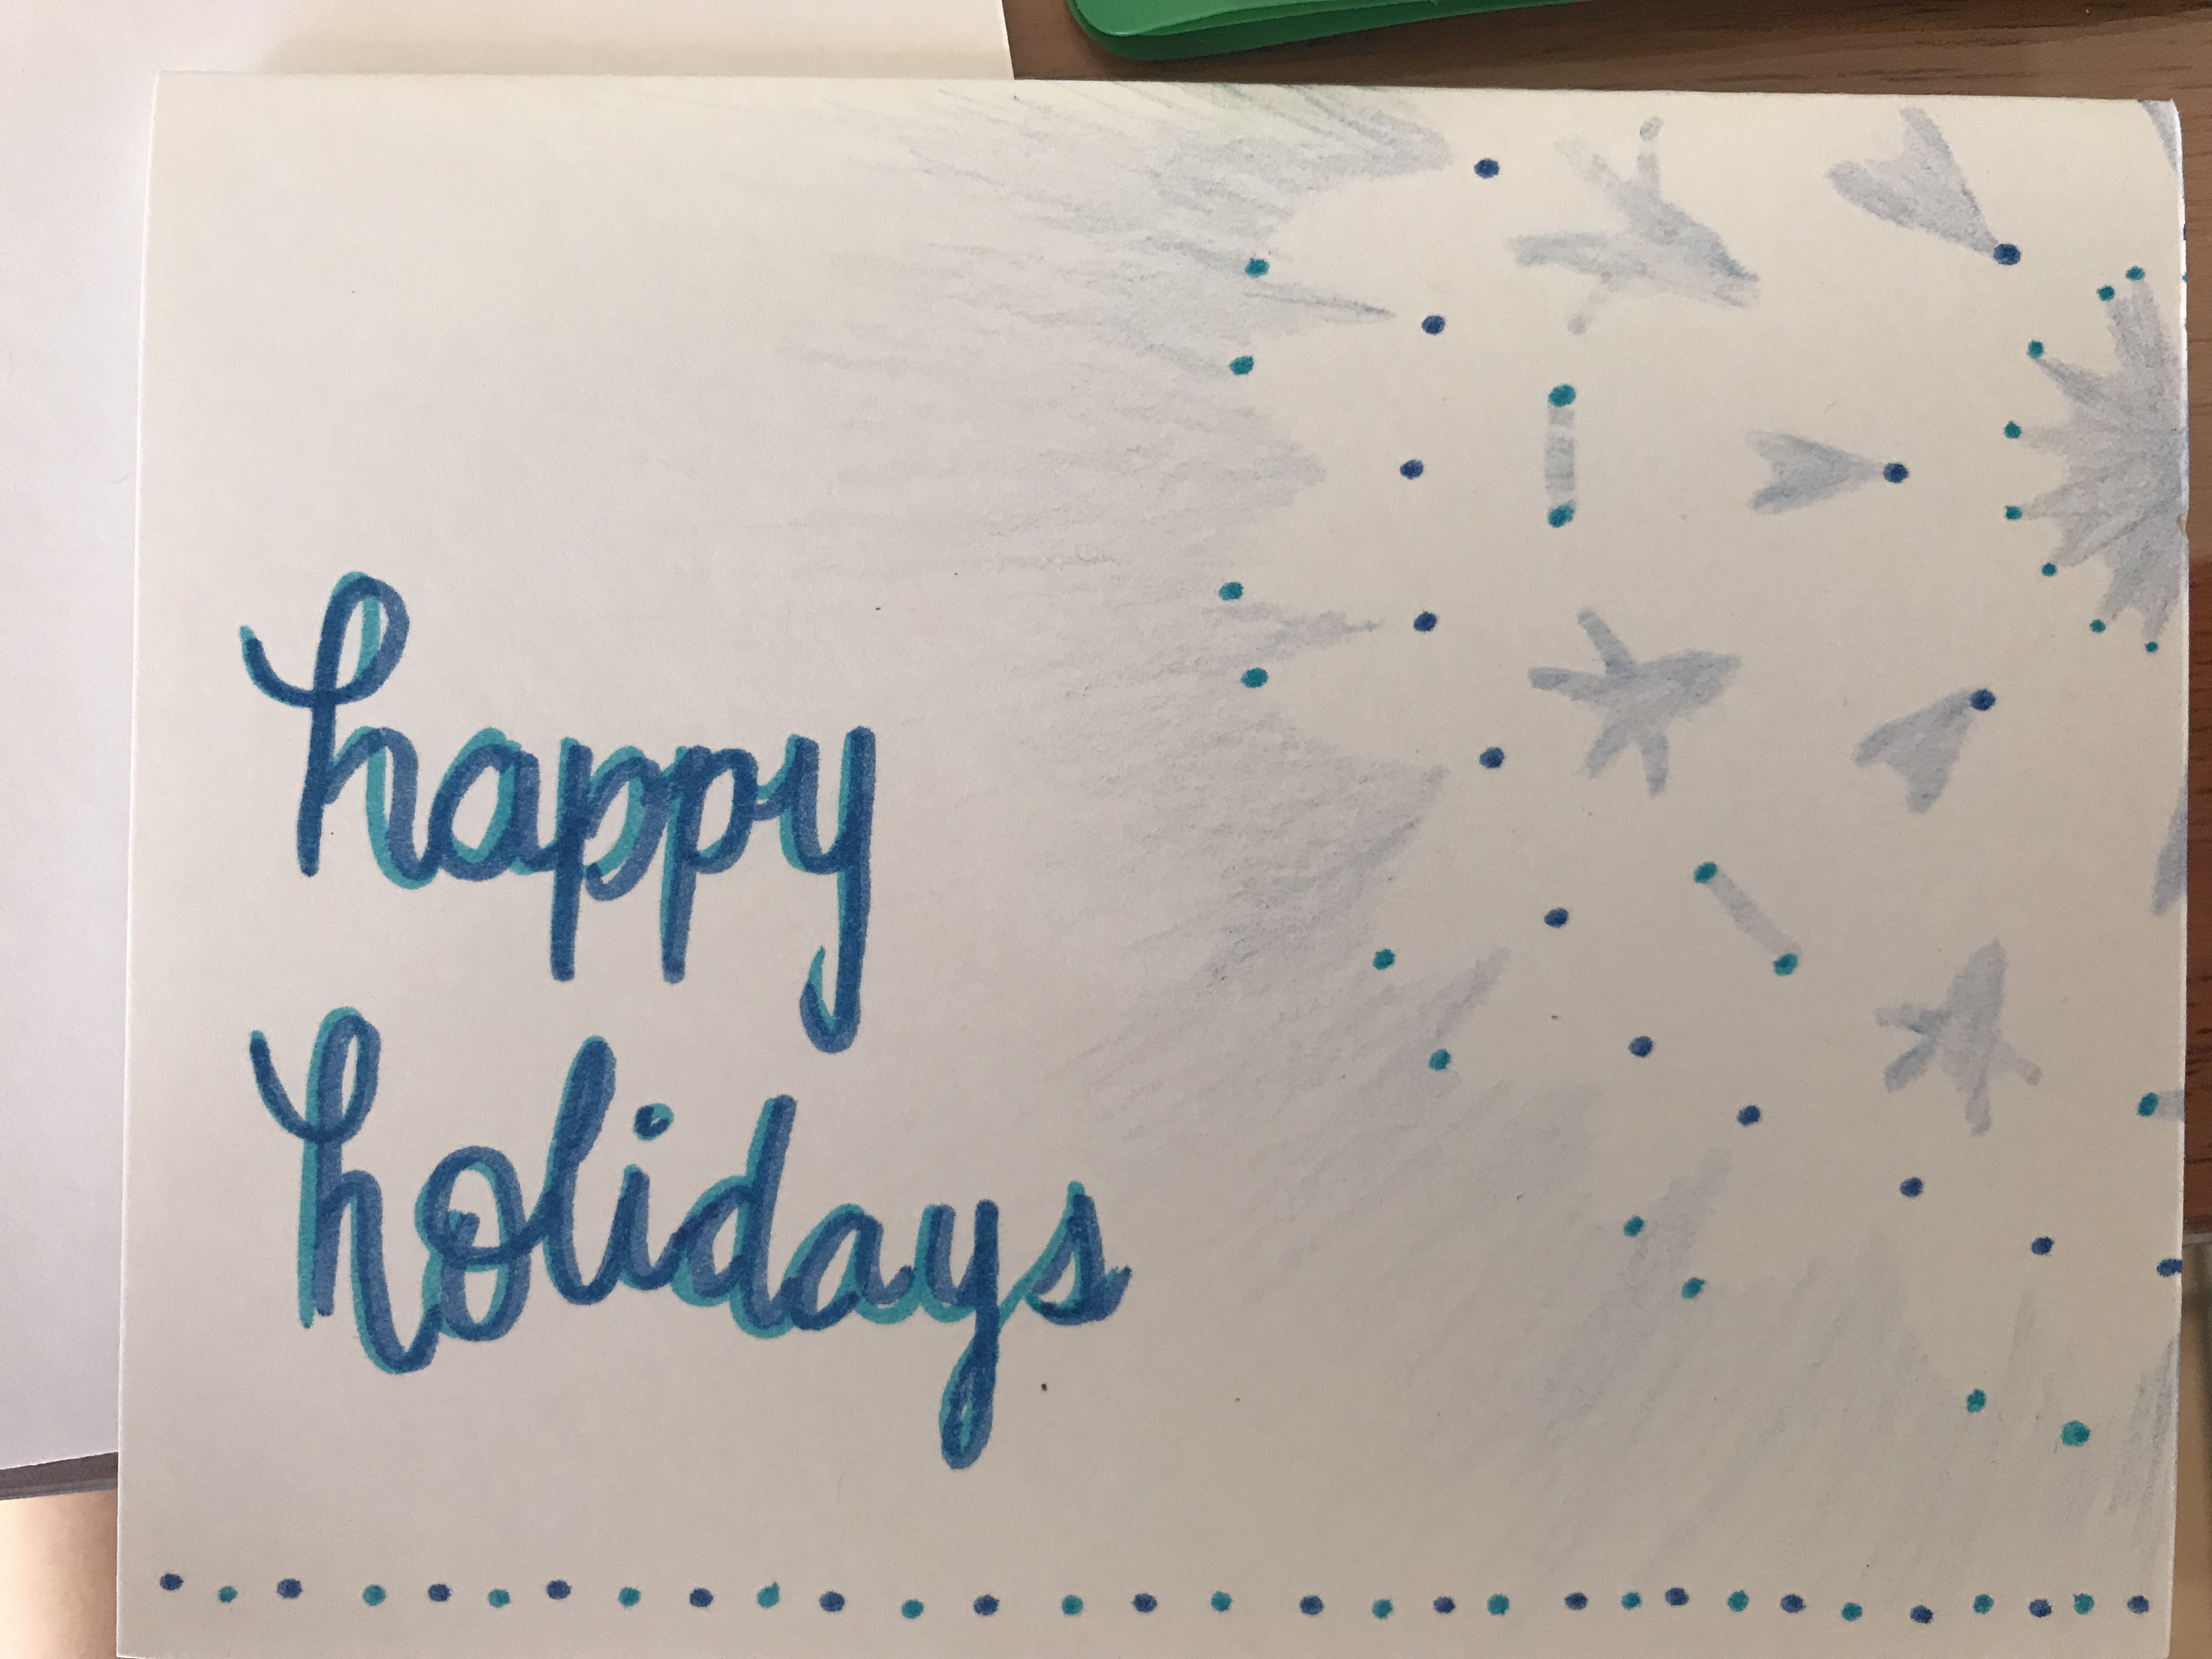 happy
holidays